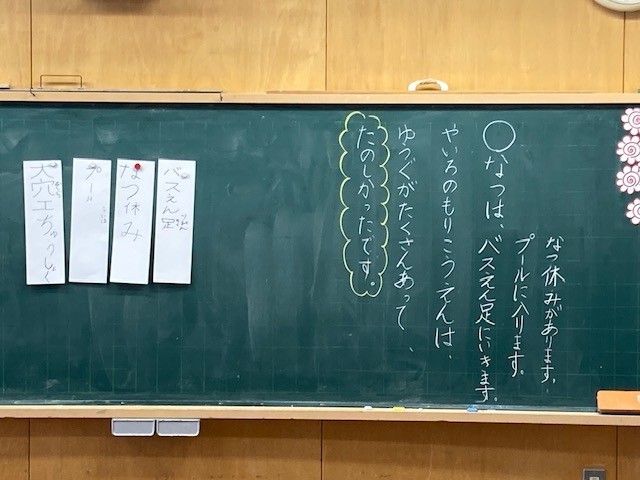 なつ休みがあります。
プールに入ります。
○なつは、バスえん足にいきます。
やいろのもりこうえんは、
ゆうぐがたくさんあって、
たのしかったです。
バスえん足
なつ休み
プール